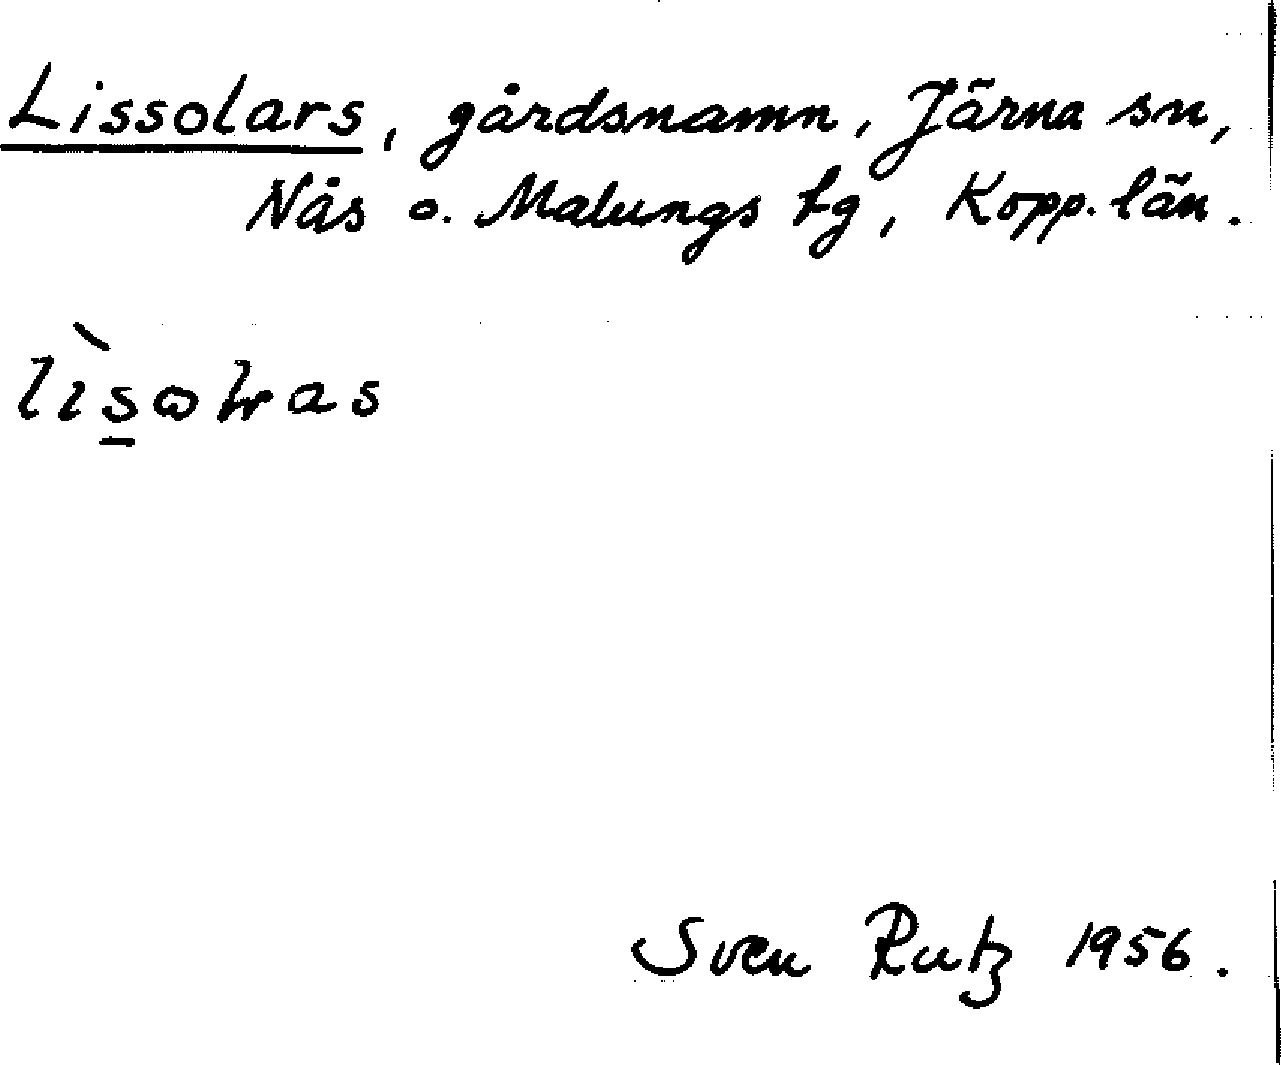 Lissolars, gårdsnamn, Järna sn,
Nås o. Malungs tg, Kopp. län.
Sven Rutz 1956.